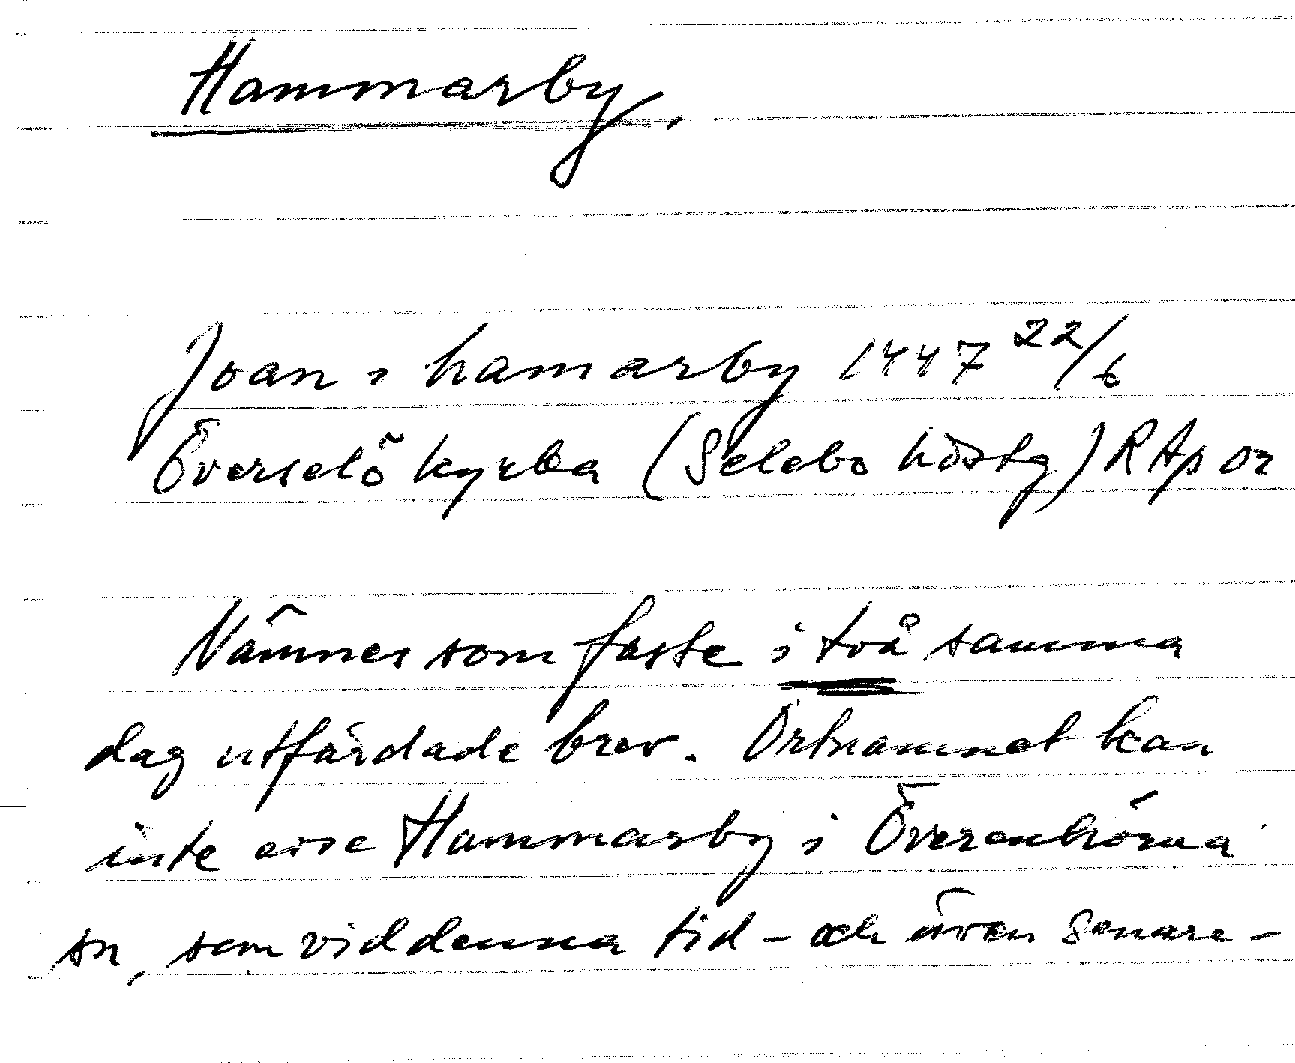 Hammarby,
Joan i hamarby 1447 22/6
Överselö kyrka (Selebo hdstg) RAp or
Nämnes som faste i två samma
dag utfärdade brev. Ortnamnet kan
inte avse Hammarby i Överenhörna
sn, som vid denna tid - och även senare -